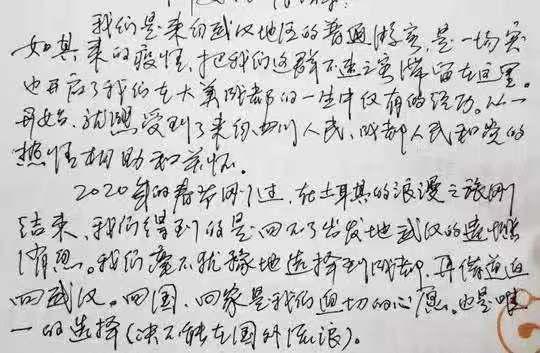 我们是来自武汉地区的普通游客,是一场突
如其来的疫情,把我们这群不速之客滞留在这里。
也开启了我们在大美成都的一生中仅有的经历。从一
开始,就感受到了来自四川人民、成都人民和党的
热情相助和关怀。
2020年的春节刚过,在土耳其的浪漫之旅刚
结束,我们得到的是回不了出发地武汉的遗憾
消息。我们毫不犹豫地选择到成都,再借道返
回武汉。回国、回家是我们迫切的心愿。也是唯
一的选择(决不能在国外流浪)。